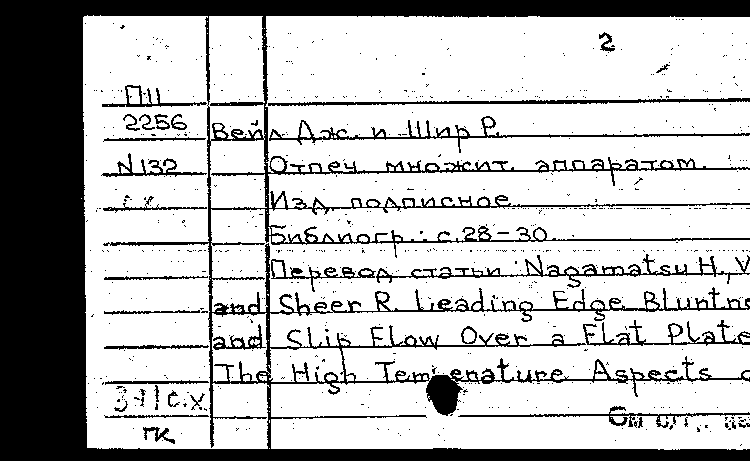 2
П11
2256 Вейл Дж. и Шир Р.
N132 Отпеч. множит. аппаратом.
с.х. Изд. подписное
Библиогр.: с.28-30
Перевод статьи: Nagamatsu H., W
and Sheer R. Leading Edge Bluntne
and Slip Flow Over a Flat Plate
The High Temperature Aspects o
с.х
ГК
См